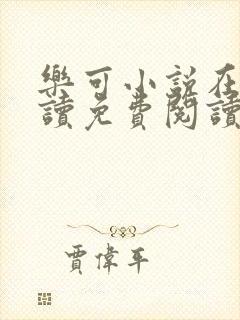 樂可小說在
讀免費閱讀
賈偉平